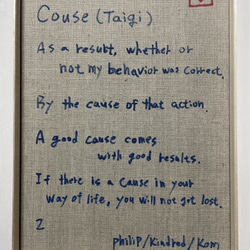 Couse (Taigi)
As a result, whether or
not my behavior was correct.
By the cause of that action.
A good cause comes
with good resules.
If there is a cause in your
way of life, you will not get lost.
2
philip/Kindred/Kom